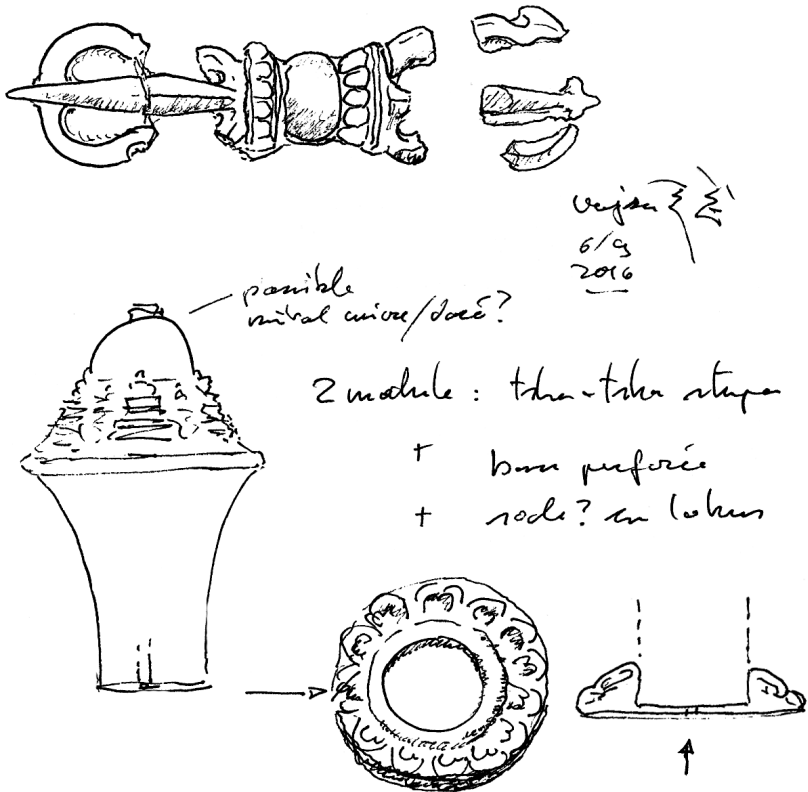 vajra
6/9
2016
possible
métal cuivre/doré?
2 module : tsha-tsha stupa
+ base perforée
+ socle? en lotus